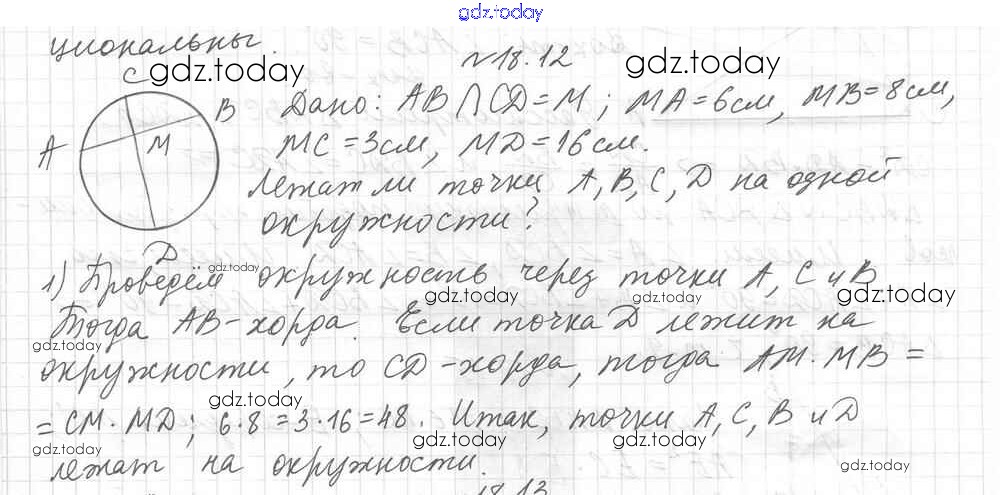 gdz.today
циональны.
№18.12
gdz.today gdz.today
C
B
A
M
D
Дано: AB ∩ CD = M; MA = 6см, MB = 8см,
MC = 3см, MD = 16см.
Лежат ли точки A, B, C, D на одной
окружности?
gdz.today gdz.today
1) Проведём окружность через точки A, C и B
gdz.today gdz.today
Тогда AB - хорда. Если точка D лежит на
gdz.today gdz.today
окружности, то CD - хорда, тогда AM · MB =
gdz.today
= CM · MD; 6·8 = 3·16 = 48. Итак, точки A, C, B и D
gdz.today gdz.today gdz.today
лежат на окружности.
gdz.today
18.13